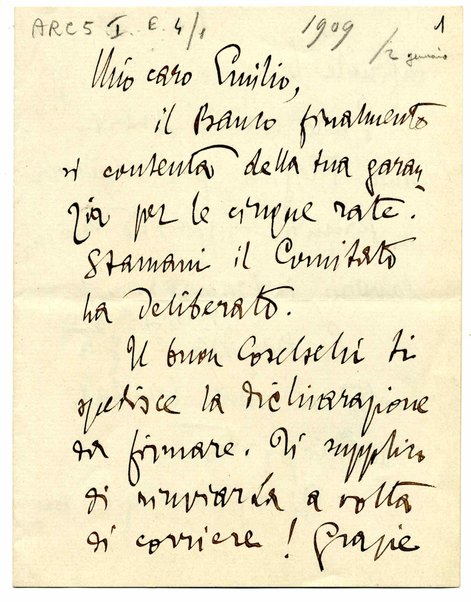 ARC 5 I. E. 4/1 1909 1
/2 gennaio
Mio caro Emilio,
il Banco finalmente
si contenta della tua garan
zia per le cinque rate.
Stamani il Comitato
ha deliberato.
Il buon Coselschi ti
spedisce la dichiarazione
da firmare. Ti supplico
di rinviarla a volta
di corriere! Grazie